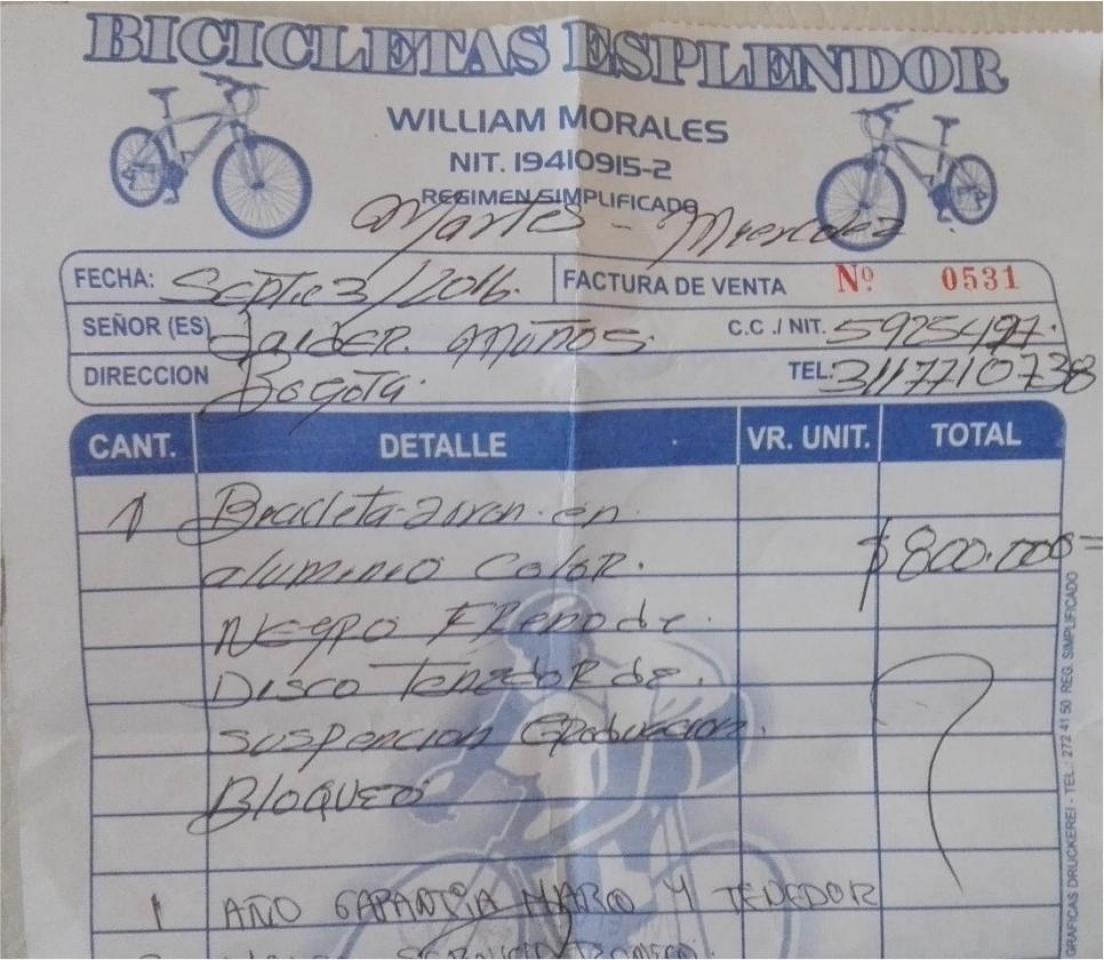 BICICLETAS ESPLENDOR
WILLIAM MORALES
NIT. 19410915-2
REGIMEN SIMPLIFICADO
Martes - Miercolez
FECHA: Septie 3/2016. FACTURA DE VENTA Nº 0531
SEÑOR (ES) Jaider. Muños. C.C./NIT. 5925497.
DIRECCION Bogota. TEL: 3117710738
CANT. DETALLE VR. UNIT. TOTAL
1 Bicicleta en
aluminio Color. $800.000=
Negro Freno de.
Disco Tenedor de.
suspencion Graduacion.
Bloqueo
1 AÑO GARANTIA MARCO Y TENEDOR
SERVICIO TECNICO.
GRAFICAS DRUCKEREI - TEL.: 272 41 50 REG. SIMPLIFICADO